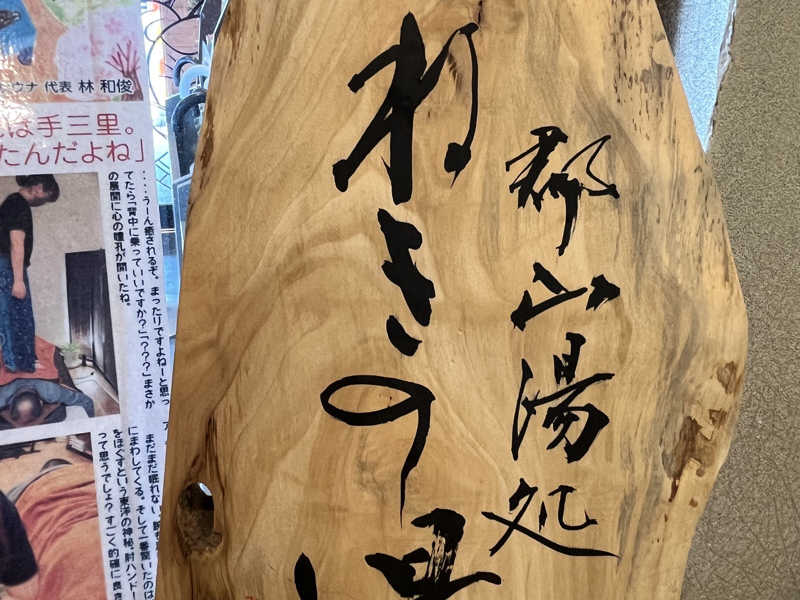 郡山湯処
ねぎの
ウナ 代表 林 和俊
は手三里。
たんだよね」
・・・・うーん癒されるぞ。まったりですよねーと思っ
てたら「背中に乗っていいですか?」「???」まさか
の展開に心の瞳孔が開いたね。
まだまだ眠れない。
にまわしてくる。そして一番驚いたのは
をほぐすという東洋の神秘。肘ハンドー
って思うでしょ?すごく的確に良き